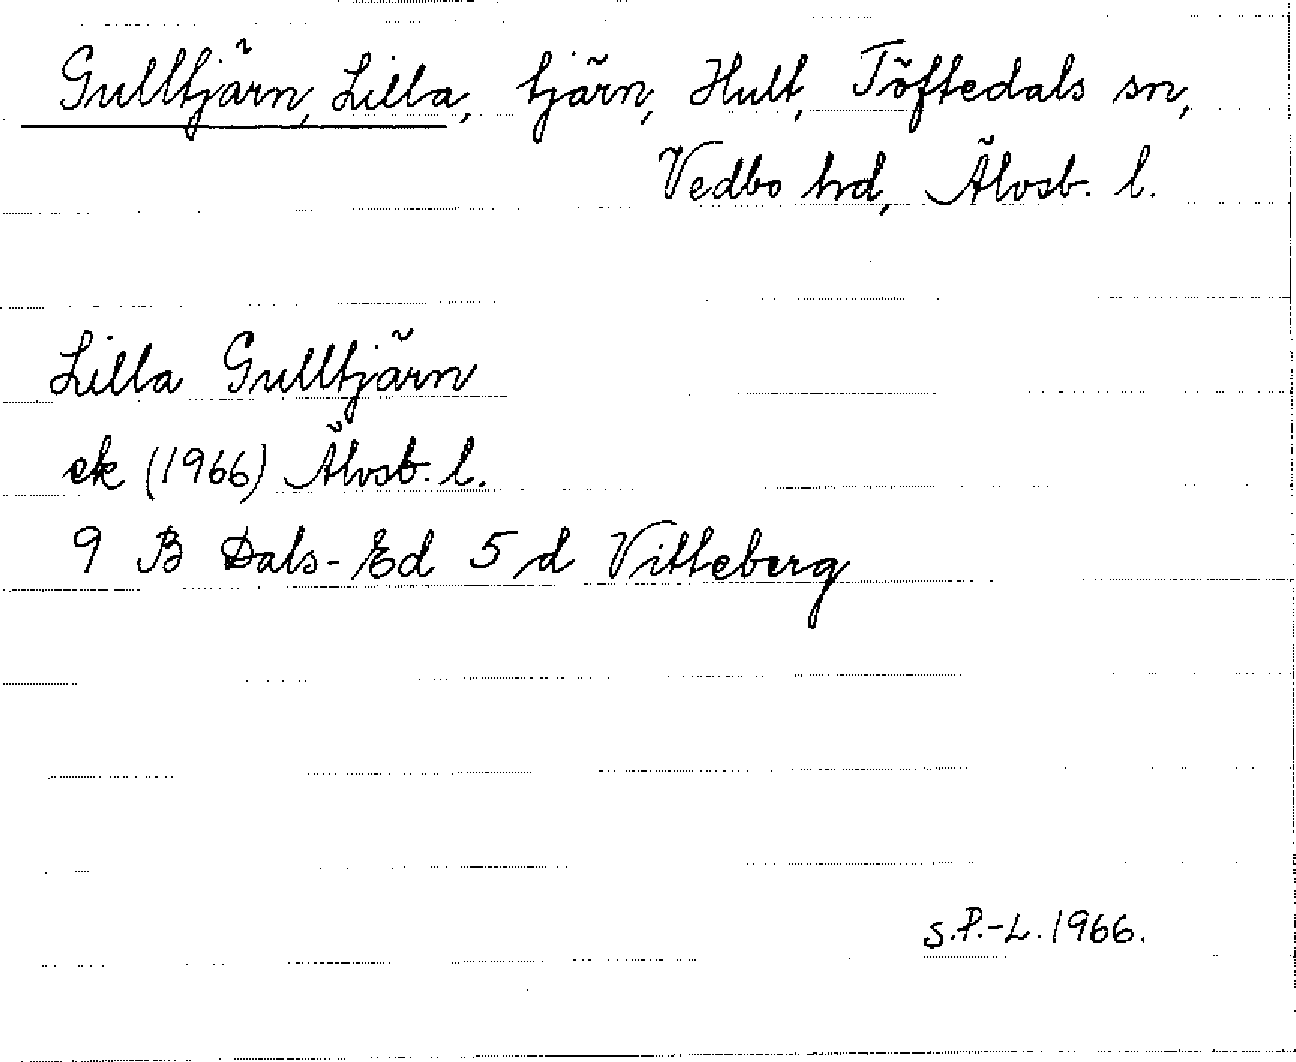 Gulltjärn, Lilla, tjärn, Hult, Töftedals sn,
Vedbo hd, Älvsb. l.
Lilla Gulltjärn
ek (1966) Älvsb. l.
9 B Dals-Ed 5 d Vitteberg
S.P.-L. 1966.